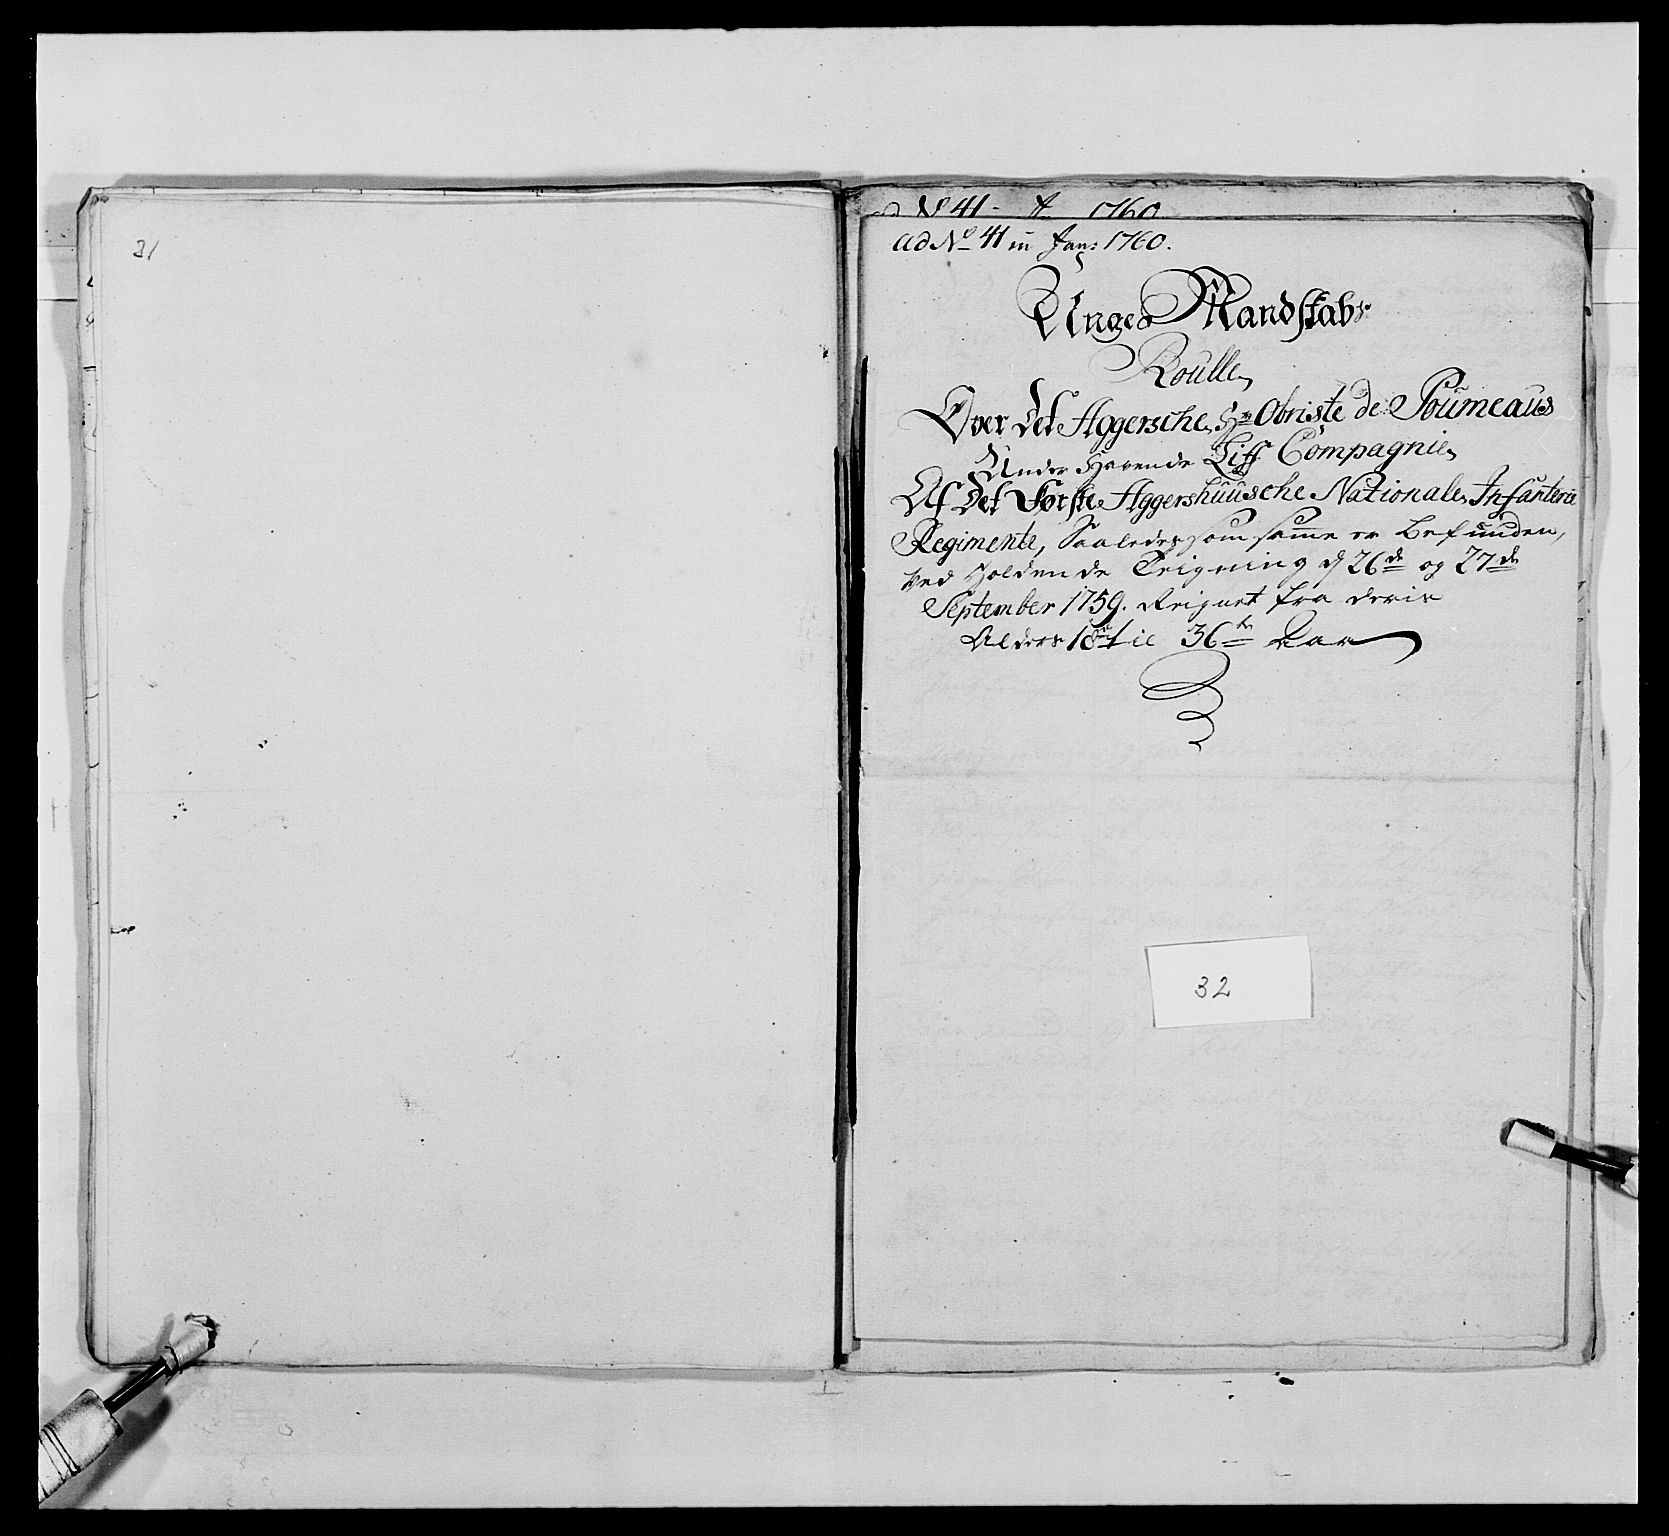 31
No 41 - 1760
ad No 41 in Jan: 1760.
Unge Mandskabs
Roulle
Over Det Aggersche, Hr Obriste de Poumeaus
Under Havende Liff Compagnie
Af Det Første Aggershuusche Nationale Infanterie
Regimente, Saaledes som samme er befunden,
ved Holdende Teigning d 26de og 27de
September 1759. Reignet fra deris
Alders 18 til 36te Aar
32